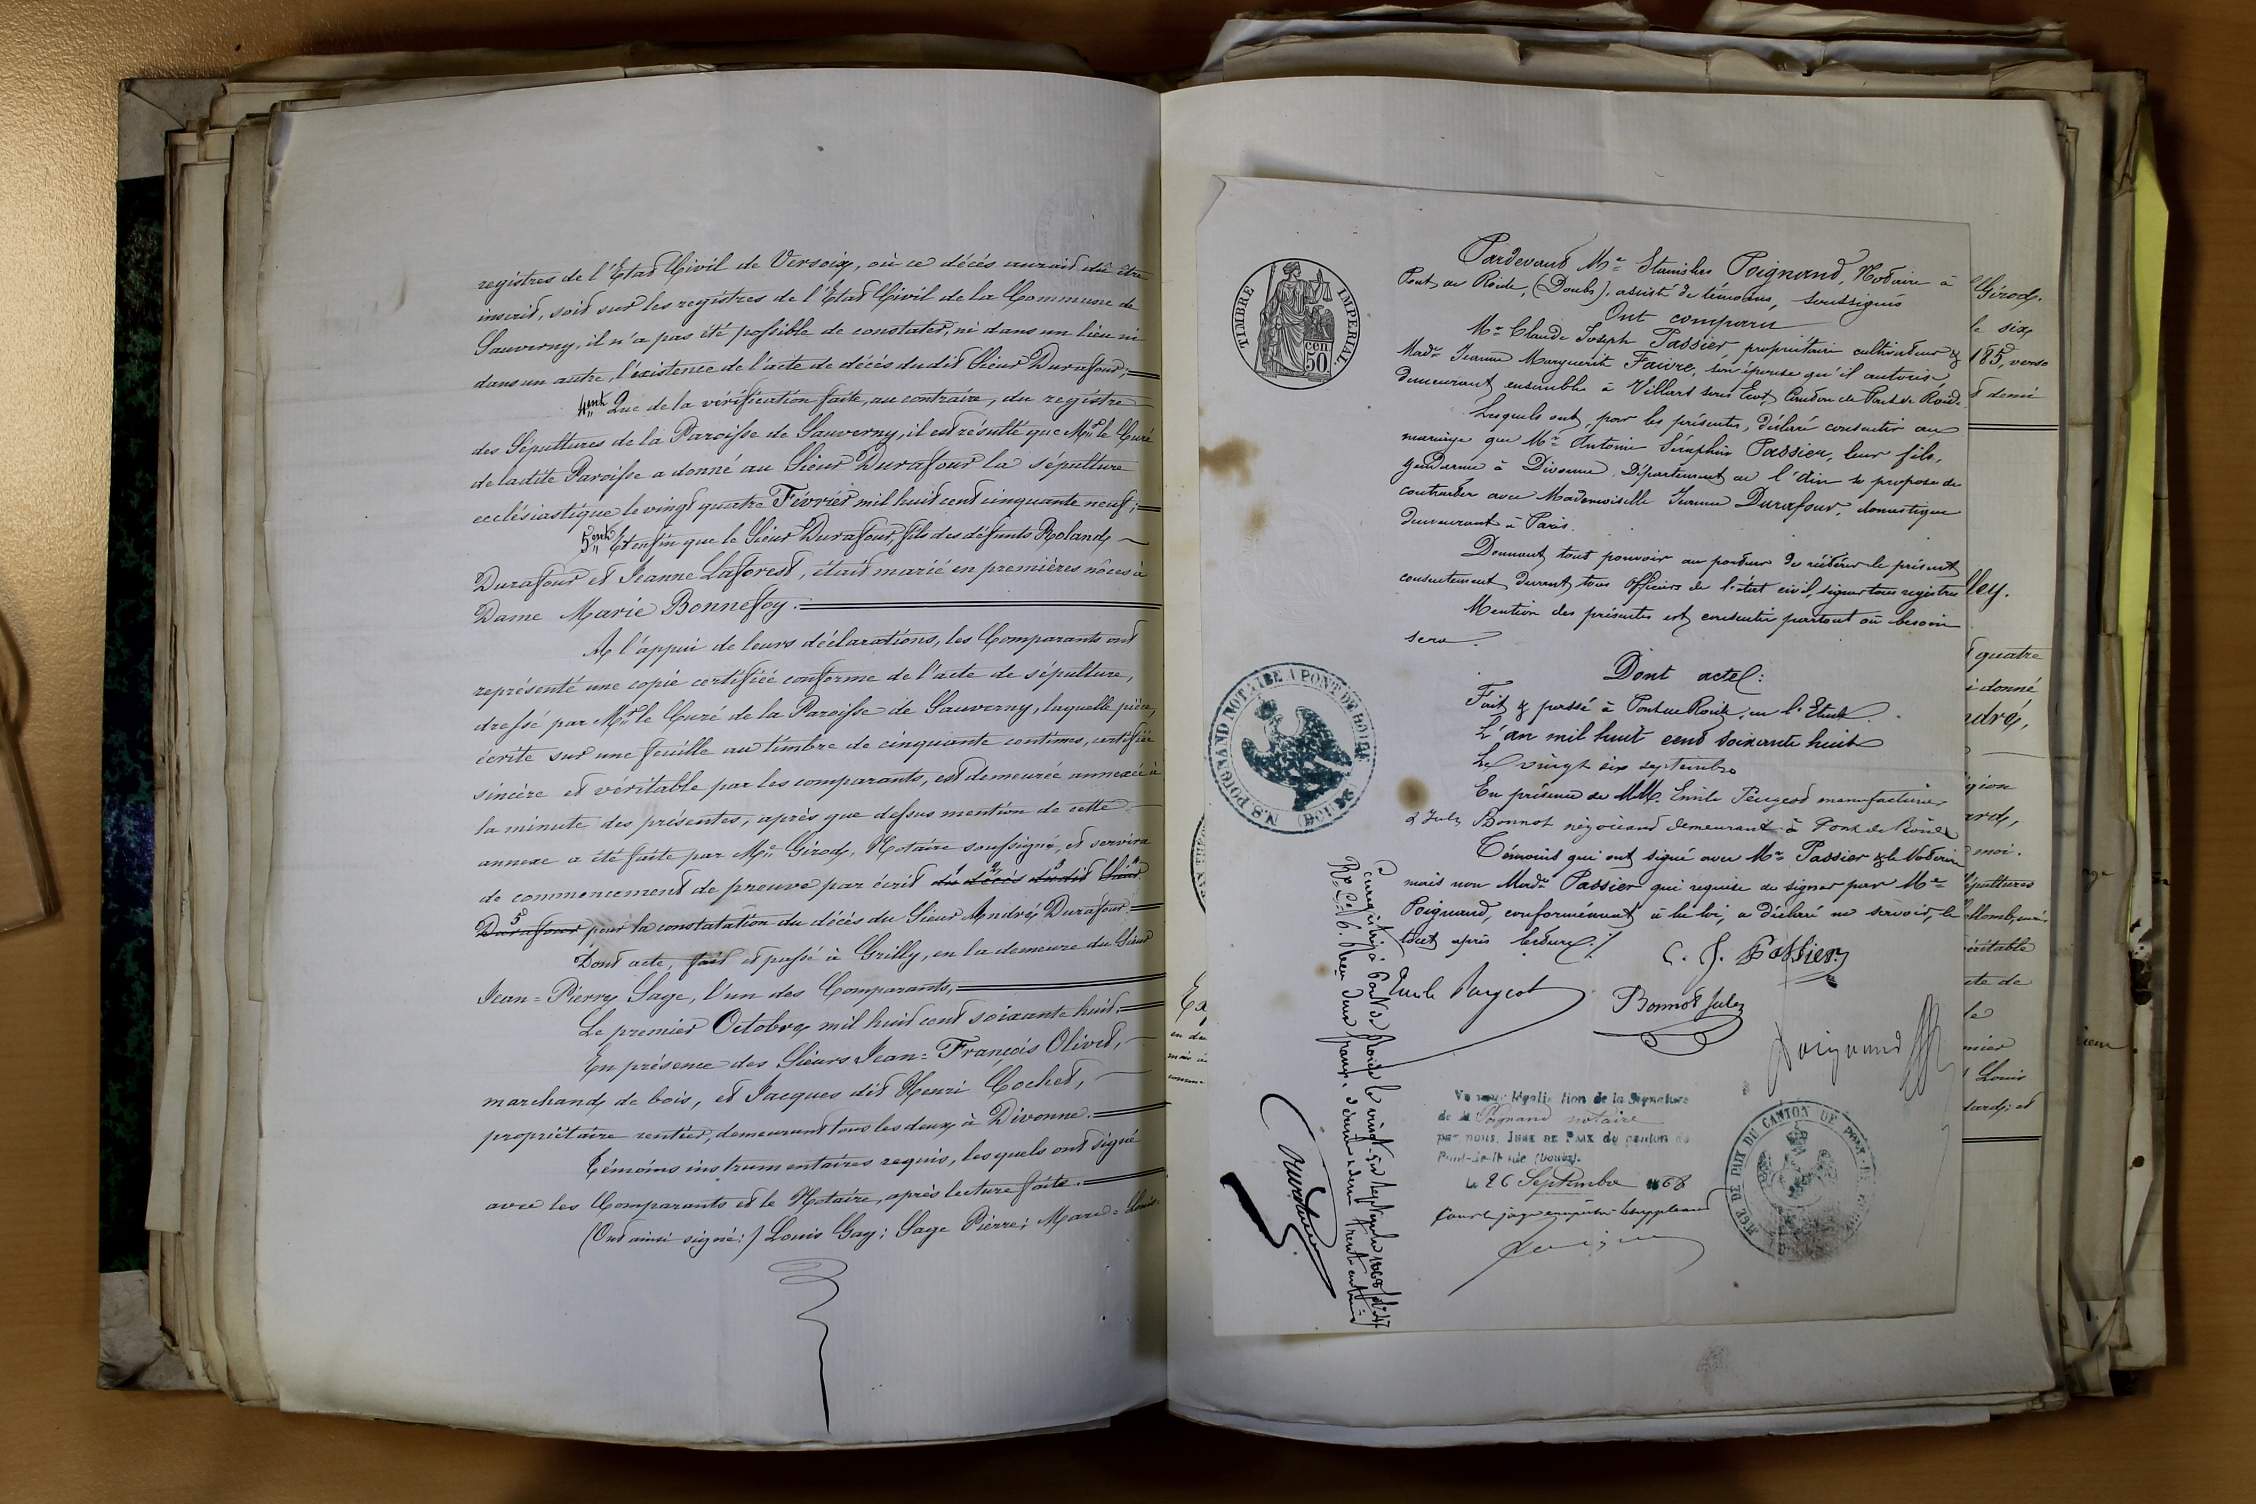 registres de l'Etat Civil de Versoix, où ce décès aurait dû être
inscrit, soit sur les registres de l'Etat Civil de la Commune de
Sauverny, il n'a pas été possible de constater, ni dans un lieu ni
dans un autre, l'existence de l'acte de décès dudit Sieur Durafour;
4ent Que de la vérification faite, au contraire, du registre
des Sépultures de la Paroisse de Sauverny, il est résulté que Mr le Curé
de ladite Paroisse a donné au Sieur Durafour la sépulture
ecclésiastique le vingt quatre Février mil huit cent cinquante neuf;
5ent Et enfin que le Sieur Durafour, fils des défunts Roland
Durafour et Jeanne Laforest, était marié en premières nôces à
Dame Marie Bonnefoy.
A l'appui de leurs déclarations, les Comparants ont
représenté une copie certifiée conforme de l'acte de sépulture,
dressé par Mr le Curé de la Paroisse de Sauverny, laquelle pièce,
écrite sur une feuille au timbre de cinquante centimes, certifiée
sincère et véritable par les comparants, est demeurée annexée à
la minute des présentes, après que dessus mention de cette
annexe a été faite par Me Girod, Notaire soussigné, et servira
de commencement de preuve par écrit du décès dudit Sieur
Durafour pour la constatation du décès du Sieur André Durafour
Dont acte, fait et passé à Grilly, en la demeure du Sieur
Jean-Pierre Sage, l'un des Comparants,
Le premier Octobre mil huit cent soixante huit,
En présence des Sieurs Jean-François Olivet,
marchand de bois, et Jacques dit Henri Cochet,
propriétaire rentier, demeurant tous les deux à Divonne.
Témoins instrumentaires requis, lesquels ont signé
avec les Comparants et le Notaire, après lecture faite.
(Ont ainsi signé:) Louis Gay; Sage Pierre; Marc-Louis
TIMBRE IMPERIAL
50 cen
Pardevant Me Stanislas Poignand, Notaire à
Pont de Roide, (Doubs), assisté de témoins, soussignés
Ont comparu
Mr Claude Joseph Passier propriétaire cultivateur &
Made Jeanne Marguerite Faivre, son épouse qu'il autorise,
demeurant ensemble à Villars sous Ecot, Canton de Pont de Roide.
Lesquels ont, par les présentes, déclaré consentir au
mariage que Mr Antoine Séraphin Passier, leur fils,
gendarme à Divonne, Département de l'Ain se propose de
contracter avec Mademoiselle Jeanne Durafour, domestique
demeurant à Paris.
Donnant tout pouvoir au porteur de réitérer le présent
consentement devant tous officiers de l'état civil, signer tous registres
Mention des présentes est consentie partout où besoin
sera.
Dont acte:
Fait & passé à Pont de Roide, en l'Etude.
L'an mil huit cent soixante huit
Le vingt six septembre
En présence de MM. Emile Peugeot manufacturier
& Jules Bonnot négociant demeurant à Pont de Roide
Témoins qui ont signé avec Mr Passier & le Notaire
mais non Made Passier qui requise de signer par Me
Poignand, conformément à la loi, a déclaré ne savoir, le
tout après lecture./.
C. J. Passier
Emile Peugeot
Bonnot Jules
Poignand
N.S. POIGNAND NOTAIRE A PONT DE ROIDE (DOUBS)
Enregistré à Pont de Roide le vingt-six septembre 1868 fo 47
Ro c. 6. Reçu deux francs, décime & demi trente centimes
Vu pour légalisation de la Signature
de M Poignand notaire
par nous, JUGE DE PAIX du canton de
Pont-de-Roide (Doubs).
Le 26 Septembre 1868
Pour le juge empêché le suppléant
JUGE DE PAIX DU CANTON DE PONT-DE-ROIDE
Girod.
le six
185, verso
t demi
lley.
t quatre
i donné
ndré,
gion
ard,
moi.
épultures
éritable
cte de
le
mier
Louis
tard; et